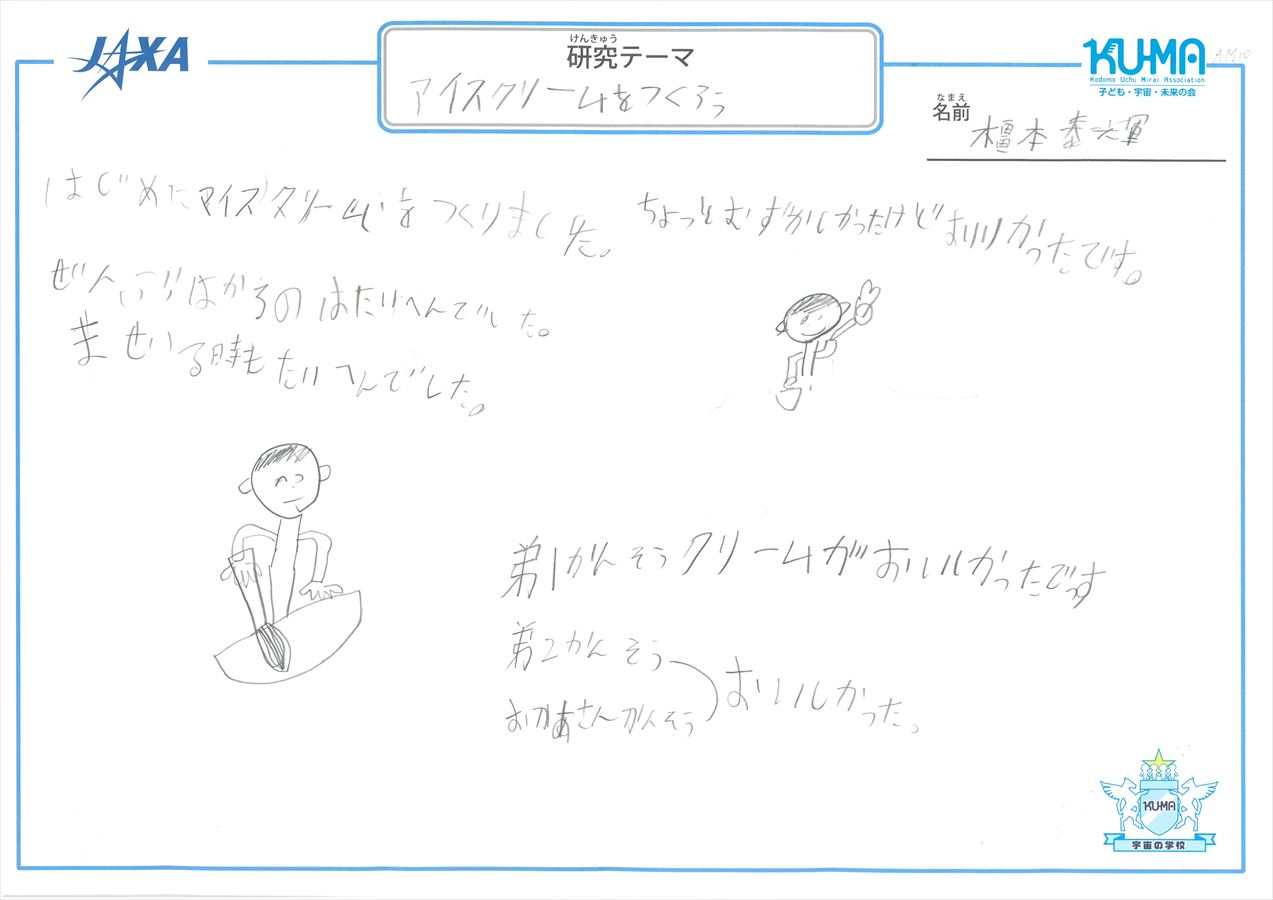 JAXA
けんきゅう
研究テーマ
アイスクリームをつくろう
KUMA
AM10
Kodomo Uchu Mirai Association
子ども・宇宙・未来の会
なまえ
名前
橿本泰
はじめにアイスクリームをつくりました。
ぜんぶはかるのはたいへんでした。
まぜいる時もたいへんでした。
ちょっとむずかしかったけどおいしかったです。
弟1かんそうクリームがおいしかったでっす
弟2かんそう
おかあさんかんそう
おいしかった。
KUMA
宇宙の学校